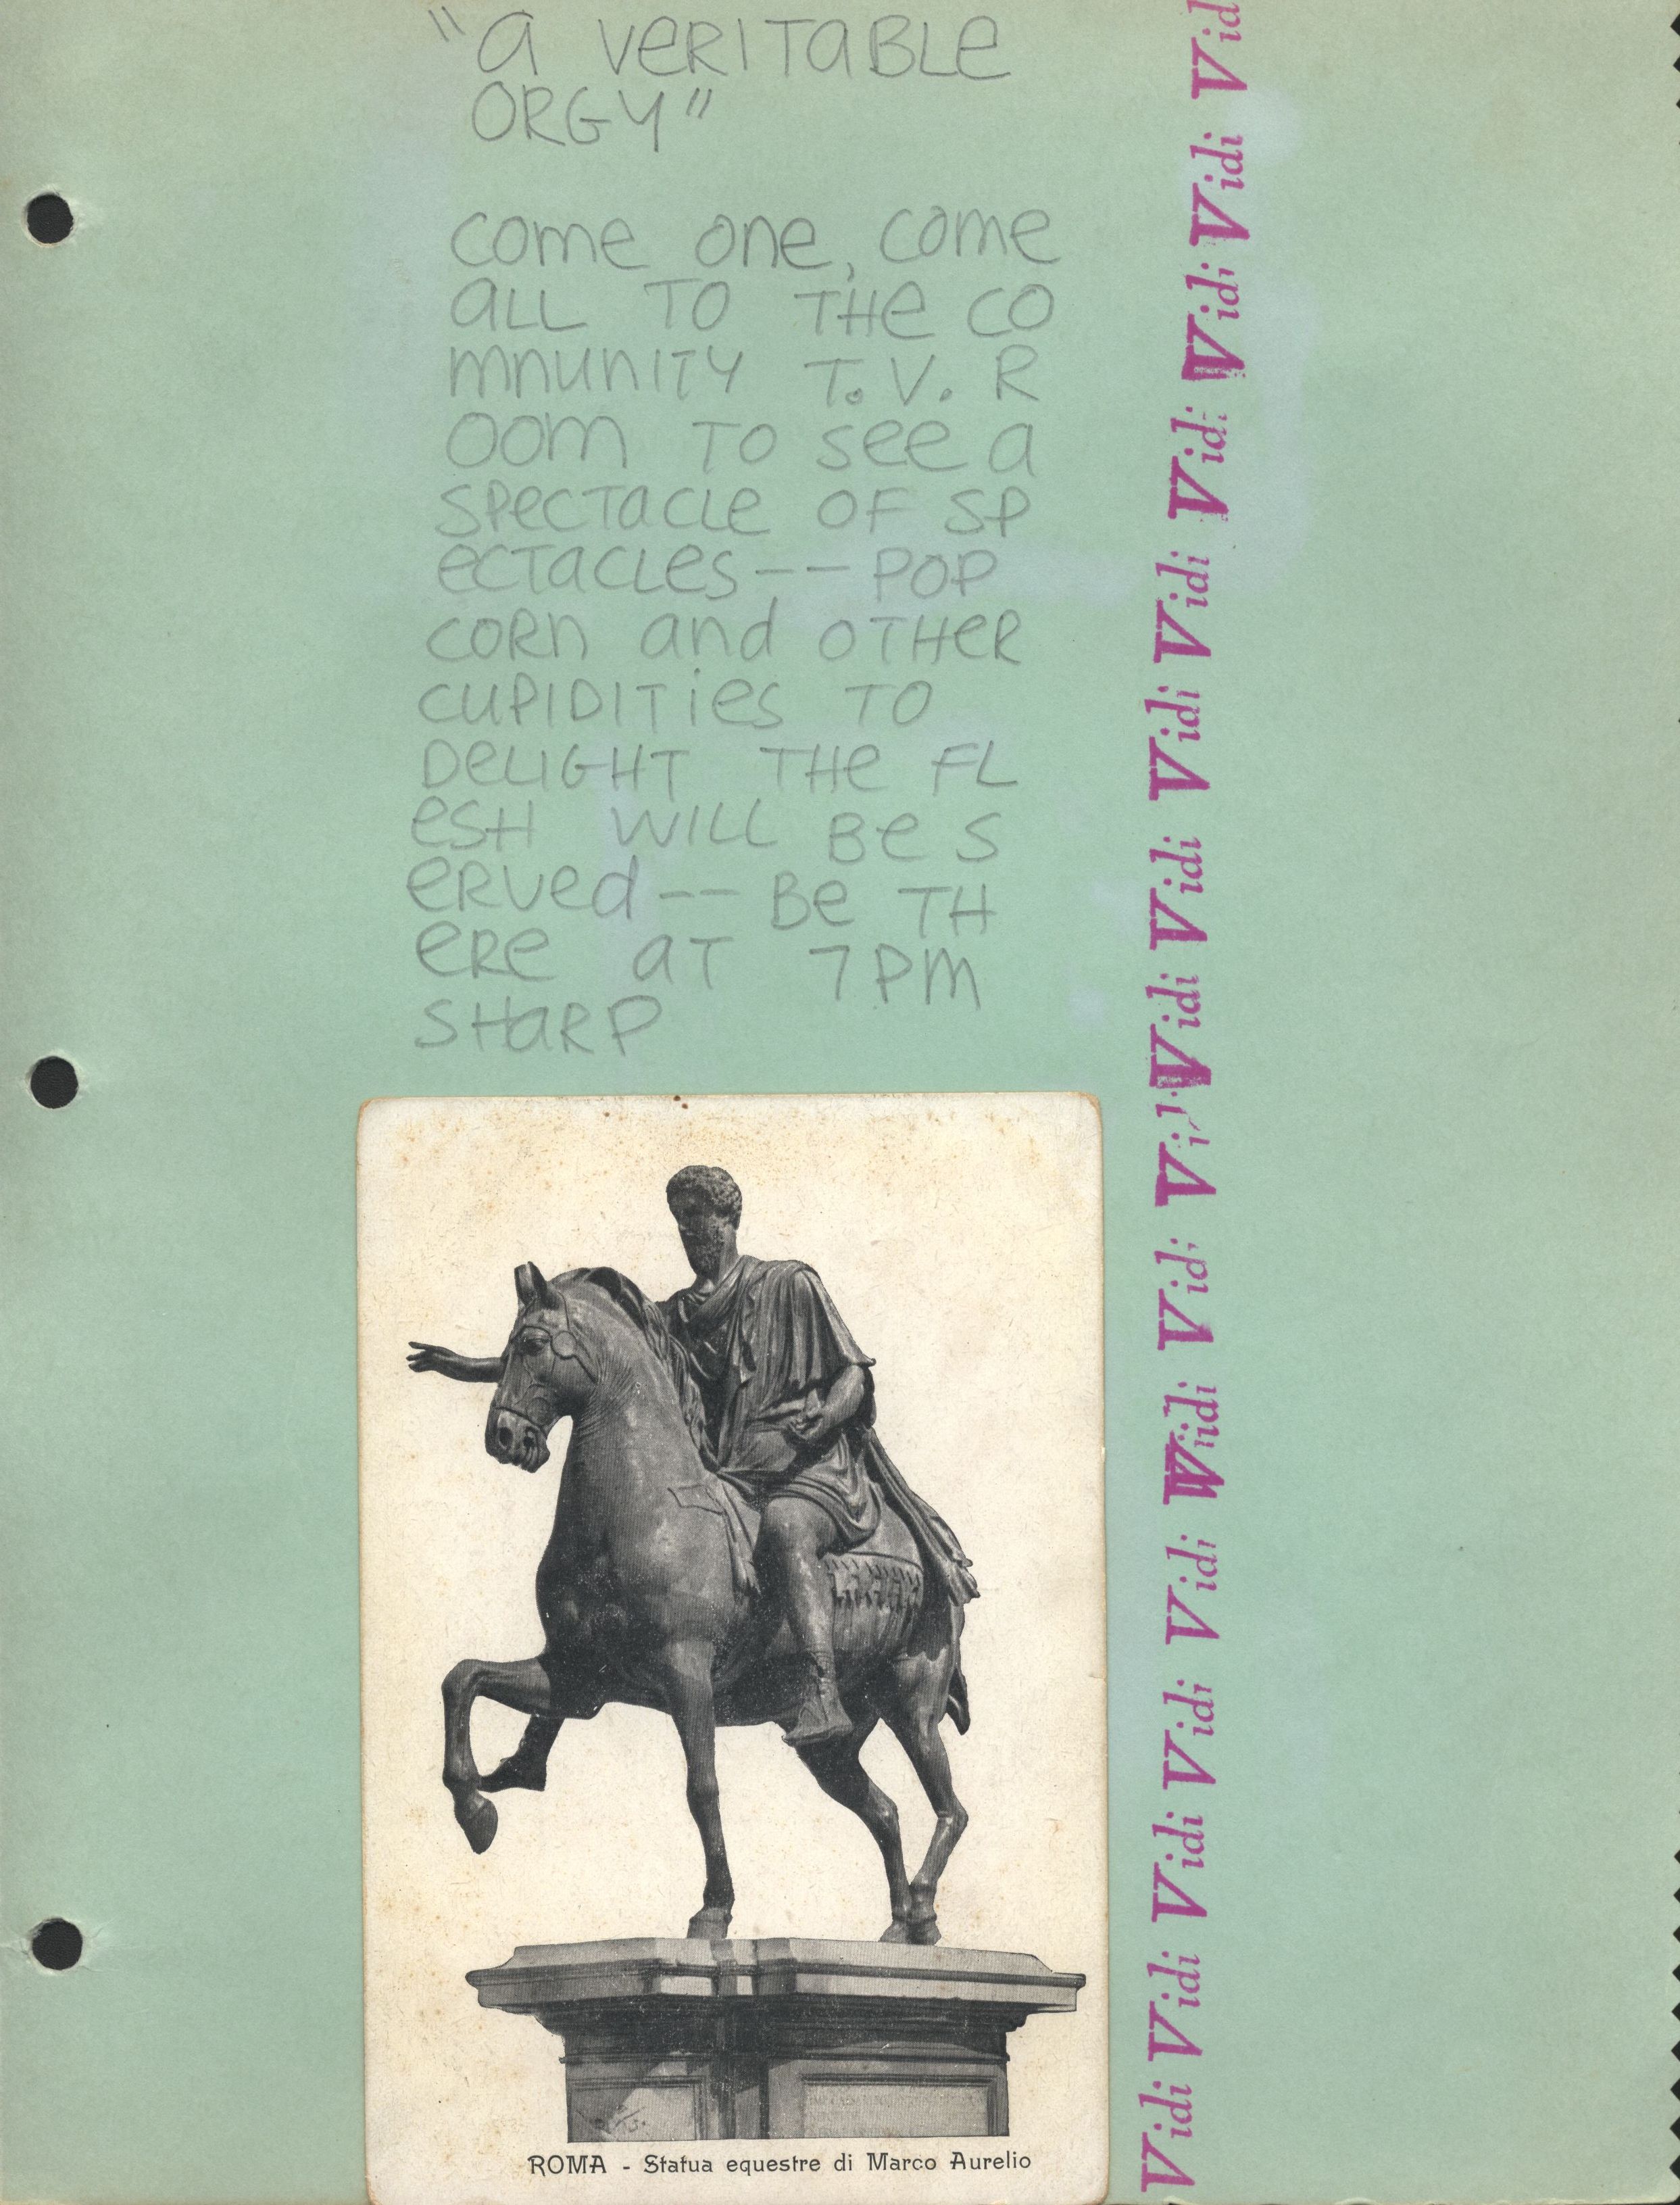 "a VeRITaBLe
ORGY"
come one, come
aLL TO THe CO
mnunITY T.V. R
OOm TO see a
SPecTacLe OF SP
ecTacLes -- POP
CORn and OTHeR
cuPIDITies TO
DeLIGHT THe FL
esH WILL Be S
eRved -- Be TH
eRe aT 7Pm
SHaRP
ROMA - Statua equestre di Marco Aurelio
Vidi Vidi Vidi Vidi Vidi Vidi Vidi Vidi Vidi Vidi Vidi Vidi Vidi Vidi Vid